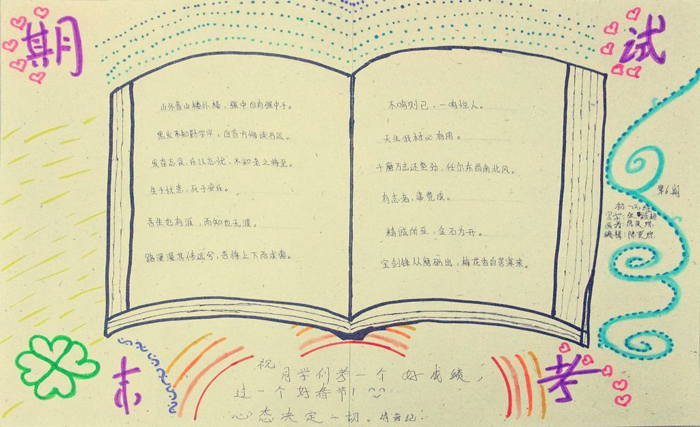 期
试
山外青山楼外楼，强中自有强中手。
黑发不知勤学早，白首方悔读书迟。
发愤忘食，乐以忘忧，不知老之将至。
生于忧患，死于安乐。
吾生也有涯，而知也无涯。
路漫漫其修远兮，吾将上下而求索。
不鸣则已，一鸣惊人。
天生我材必有用。
千磨万击还坚劲，任尔东西南北风。
有志者，事竟成。
精诚所至，金石为开。
宝剑锋从磨砺出，梅花香自苦寒来。
第6期
末
考
祝
同学们考一个好成绩，
过一个好春节！
心态决定一切。